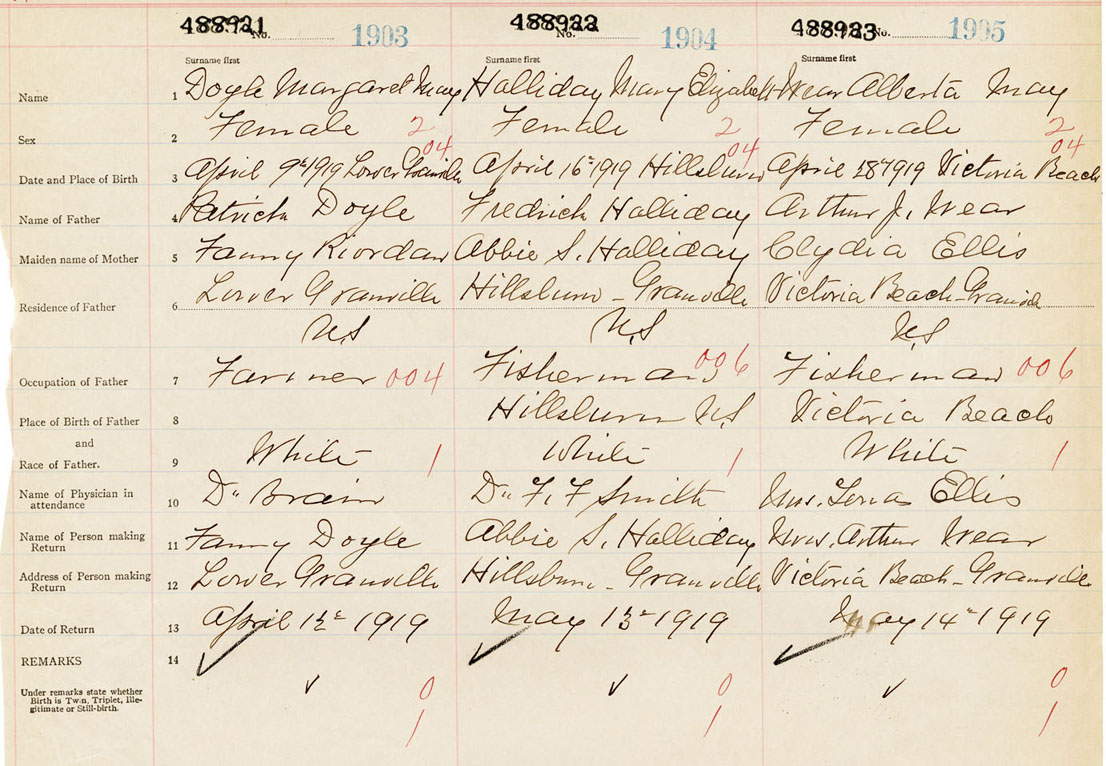 488921 No. 1903 488922 No. 1904 488923 No. 1905
Surname first Surname first Surname first
Name 1 Doyle Margaret May Halliday Mary Elizabeth Wear Alberta May
Sex 2 Female 2 Female 2 Female 2
04 04 04
Date and Place of Birth 3 April 9th 1919 Lower Granville April 16th 1919 Hillsburn April 28th 1919 Victoria Beach
Name of Father 4 Patrick Doyle Fredrick Halliday Arthur J. Wear
Maiden name of Mother 5 Fanny Riordan Abbie S. Halliday Clydia Ellis
Residence of Father 6 Lower Granville Hillsburn - Granville Victoria Beach - Granville
N.S N.S N.S
Occupation of Father 7 Farmer 004 Fisherman 006 Fisherman 006
Place of Birth of Father 8 Hillsburn N.S Victoria Beach
and
Race of Father. 9 White 1 White 1 White 1
Name of Physician in attendance 10 Dr Brain Dr F. F Smith Mrs. Ellis
Name of Person making Return 11 Fanny Doyle Abbie S. Halliday Mrs. Arthur Wear
Address of Person making Return 12 Lower Granville Hillsburn - Granville Victoria Beach - Granville
Date of Return 13 April 1919 May 13th 1919 May 14th 1919
REMARKS 14 ✓ ✓ ✓
Under remarks state whether Birth is Twin, Triplet, Ille-
gitimate or Still-birth. ✓ 0 ✓ 0 ✓ 0
1 1 1